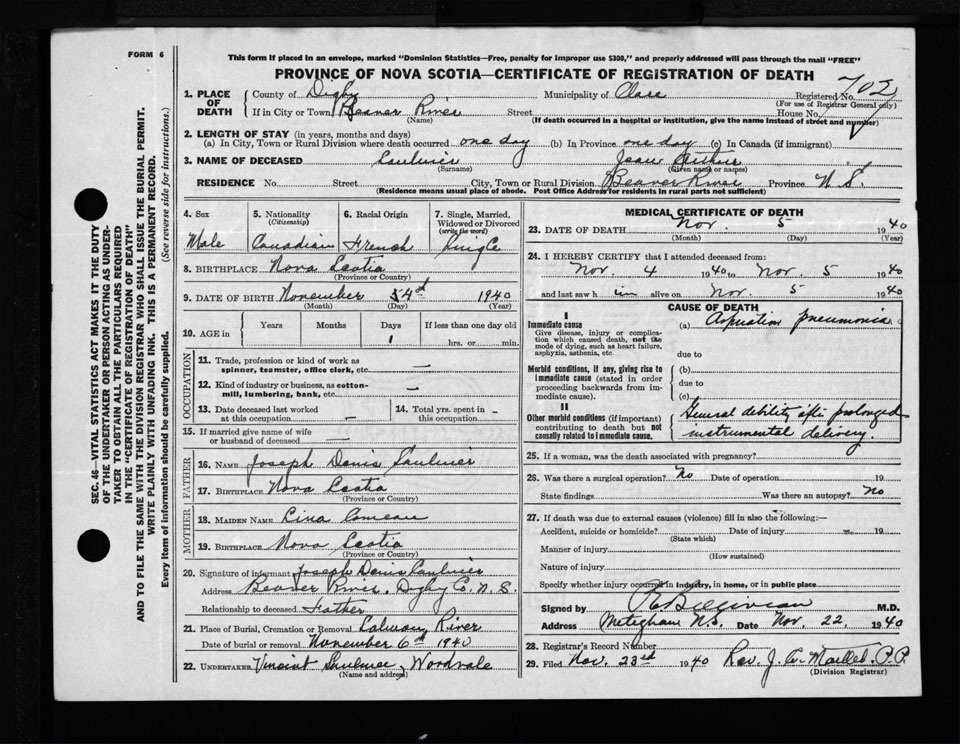 FORM 6
This form if placed in an envelope, marked "Dominion Statistics—Free, penalty for improper use $300," and properly addressed will pass through the mail "FREE"
PROVINCE OF NOVA SCOTIA—CERTIFICATE OF REGISTRATION OF DEATH
1. PLACE OF DEATH County of Digby Municipality of Clare Registered No. 702
(For use of Registrar General only)
If in City or Town Beaver River Street House No.
(Name) (If death occurred in a hospital or institution, give the name instead of street and number)
2. LENGTH OF STAY (in years, months and days)
(a) In City, Town or Rural Division where death occurred one day (b) In Province one day (c) In Canada (if immigrant)
3. NAME OF DECEASED Saulnier Jean Arthur
(Surname) (Given name or names)
RESIDENCE No. Street City, Town or Rural Division Beaver River Province N.S.
(Residence means usual place of abode. Post Office Address for residents in rural parts not sufficient)
4. Sex 5. Nationality (Citizenship) 6. Racial Origin 7. Single, Married, Widowed or Divorced (write the word)
Male Canadian French Single
8. BIRTHPLACE Nova Scotia
(Province or Country)
9. DATE OF BIRTH November 4th 1940
(Month) (Day) (Year)
10. AGE in Years Months Days If less than one day old
1 hrs. or min.
OCCUPATION
11. Trade, profession or kind of work as spinner, teamster, office clerk, etc. —
12. Kind of industry or business, as cotton-mill, lumbering, bank, etc. —
13. Date deceased last worked at this occupation — 14. Total yrs. spent in this occupation -
15. If married give name of wife or husband of deceased —
FATHER
16. NAME Joseph Denis Saulnier
17. BIRTHPLACE Nova Scotia
(Province or Country)
MOTHER
18. MAIDEN NAME Lina Comeau
19. BIRTHPLACE Nova Scotia
(Province or Country)
20. Signature of informant Joseph Denis Saulnier
Address Beaver River, Digby Co. N.S.
Relationship to deceased Father
21. Place of Burial, Cremation or Removal Salmon River
Date of burial or removal November 6th 1940
22. UNDERTAKER Vincent Saulnier, Woodvale
(Name and address)
MEDICAL CERTIFICATE OF DEATH
23. DATE OF DEATH Nov. 5 1940
(Month) (Day) (Year)
24. I HEREBY CERTIFY that I attended deceased from:
Nov. 4 1940 to Nov. 5 1940
and last saw him alive on Nov. 5 1940
CAUSE OF DEATH
I
Immediate cause (a) Aspiration pneumonia
Give disease, injury or complication which caused death, not the mode of dying, such as heart failure, asphyxia, asthenia, etc.
due to
Morbid conditions, if any, giving rise to immediate cause (stated in order proceeding backwards from immediate cause).
(b)
due to
(c)
II
Other morbid conditions (if important) contributing to death but not causally related to immediate cause.
General debility after prolonged
instrumental delivery.
25. If a woman, was the death associated with pregnancy?
26. Was there a surgical operation? No Date of operation 19
State findings Was there an autopsy? No
27. If death was due to external causes (violence) fill in also the following:—
Accident, suicide or homicide? Date of injury 19
(State which)
Manner of injury
(How sustained)
Nature of injury
Specify whether injury occurred in industry, in home, or in public place
Signed by M.D.
Address Meteghan N.S. Date Nov. 22, 1940
28. Registrar's Record Number
29. Filed Nov. 23rd 1940 Rev. J. A. Maillet, P.P.
(Division Registrar)
SEC. 46—VITAL STATISTICS ACT MAKES IT THE DUTY
OF THE UNDERTAKER OR PERSON ACTING AS UNDER-
TAKER TO OBTAIN ALL THE PARTICULARS REQUIRED
IN THE "CERTIFICATE OF REGISTRATION OF DEATH"
AND TO FILE THE SAME WITH THE DIVISION REGISTRAR WHO SHALL ISSUE THE BURIAL PERMIT.
WRITE PLAINLY WITH UNFADING INK. THIS IS A PERMANENT RECORD.
Every item of information should be carefully supplied. (See reverse side for instructions.)